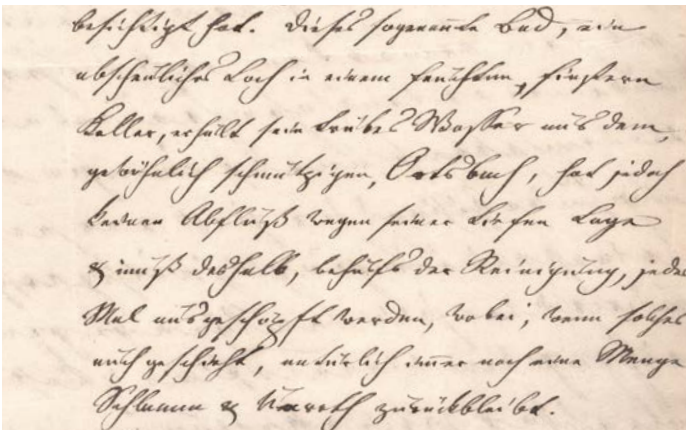 besichtigt hat. Dieses sogenannte Bad, ein
abscheuliches Loch in einem feuchten, finstern
Keller, erhält sein trübes Wasser aus dem,
gewöhnlich schmutzigen, Ortsbach, hat jedoch
keinen Abfluß wegen seiner tiefen Lage
& muß deshalb, behufs der Reinigung, jedes
Mal ausgeschöpft werden, wobei, wenn solches
auch geschieht, natürlich immer noch eine Menge
Schlamm & Unrath zurückbleibt.